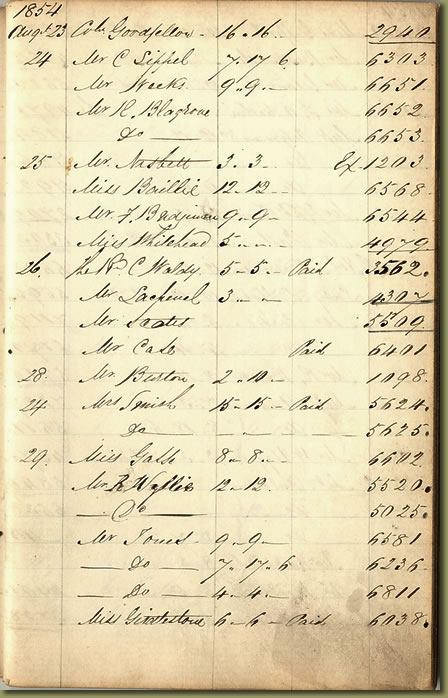 1854
Augst 23 Coln Goodfellow - 16 - 16 - 2940
24 Mr C Sippel 7 - 17 6 6303
Mr Weeks 9 - 9 - 6651
Mr H. Blagrove 6652
Do 6653
25 Mr. Nasbett 3 - 3 - Ex 1203
Miss Baillie 12 - 12 - 6568
Mr. F. Bridgeman 9 - 9 - 6544
Miss Whitehead 5 - - - 4979
26 C Waldy. 5 - 5 - Paid 3562.
Mr 3 - - 4307
Mr Scates 5509
Mr Case Paid 6401
28 Mr. Burton 2 - 10 - 1098.
24 Mrs Smith 15 - 15 - Paid 5624.
Do 5625.
29 Miss 8 - 8 - 6602.
Mr. R Wallis 12 - 12. 5520.
Do 5025.
Mr Jones - 9 - 9 - 6581
Do 7 - 17 - 6 6236
Do 4 - 4 - 6811
Miss 6 - 6 - Paid 6038.